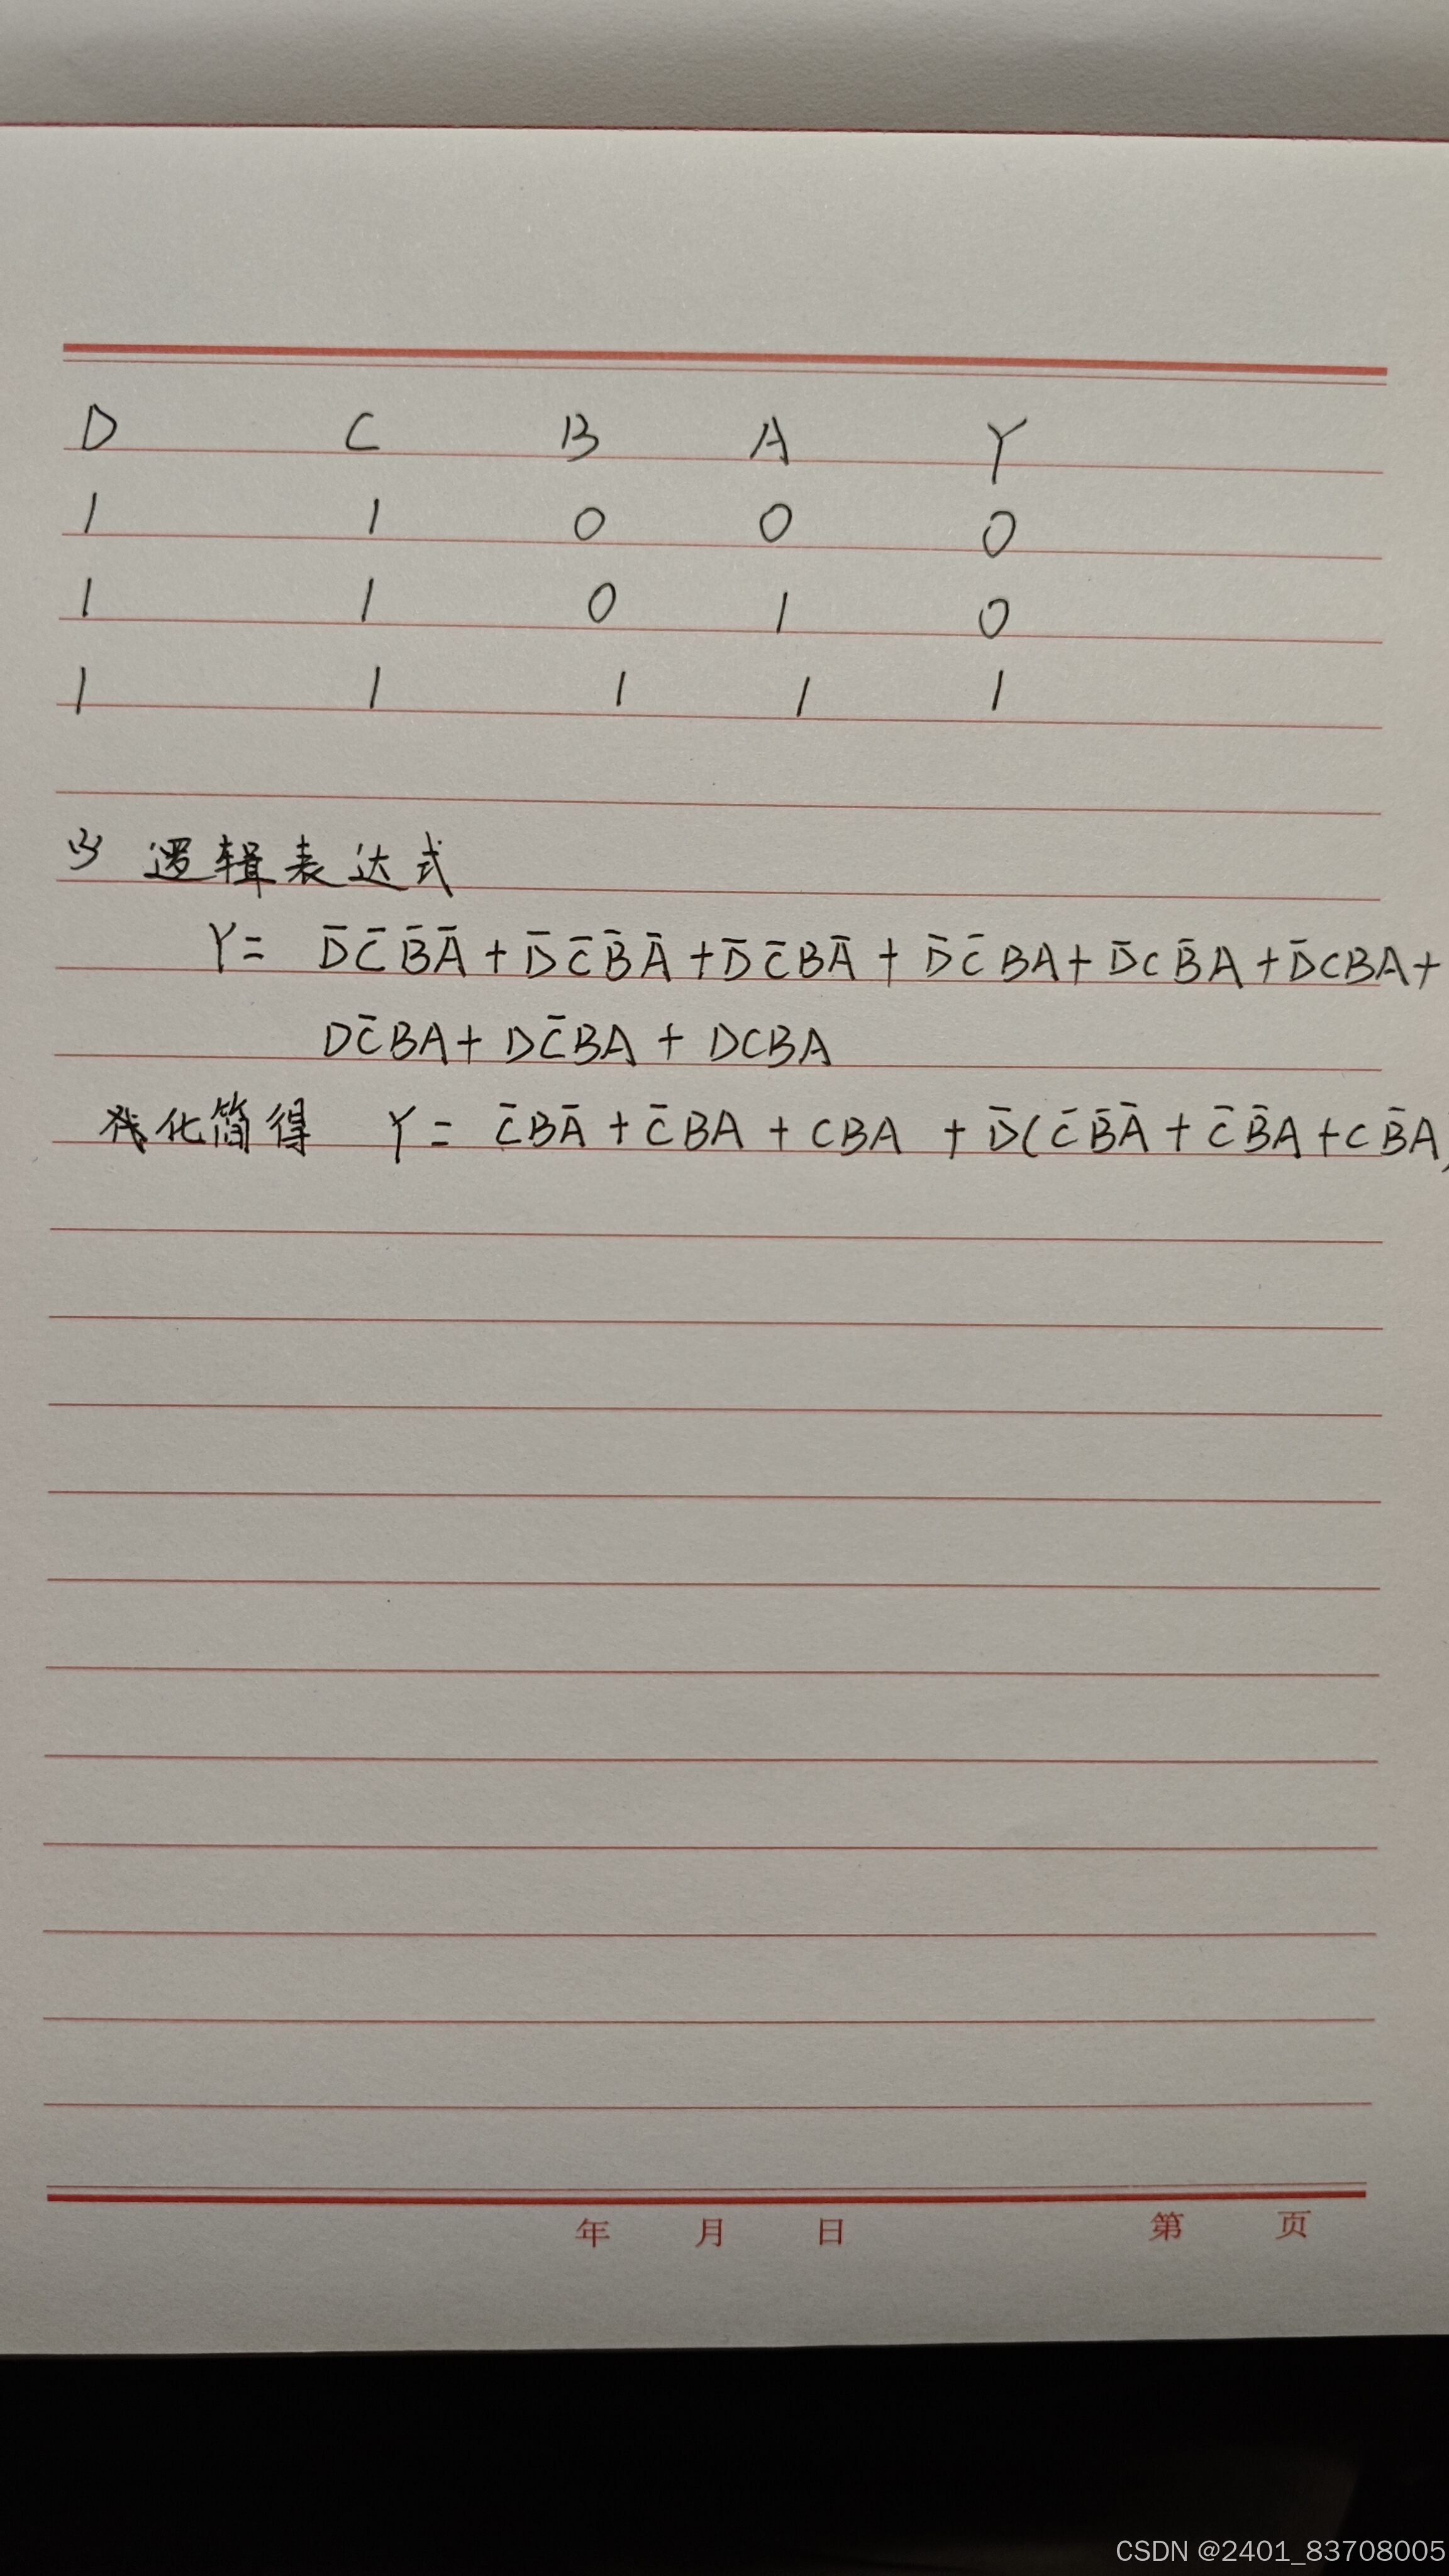 D C B A Y
1 1 0 0 0
1 1 0 1 0
1 1 1 1 1
逻辑表达式
Y= D̄C̄B̄Ā + D̄C̄B̄Ā + D̄C̄BĀ + D̄C̄BA + D̄CB̄A + D̄CBA +
DC̄BA + DC̄BA + DCBA
化简得 Y = C̄BĀ + C̄BA + CBA + D̄(C̄B̄Ā + C̄B̄A + CB̄A)
年 月 日 第 页
CSDN @2401_83708005